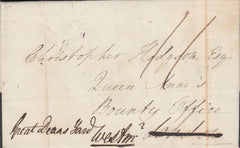 11
Christopher Hodgson Esq.
Queen Anne's
Bounty Office
Great Deans Yard Westmr